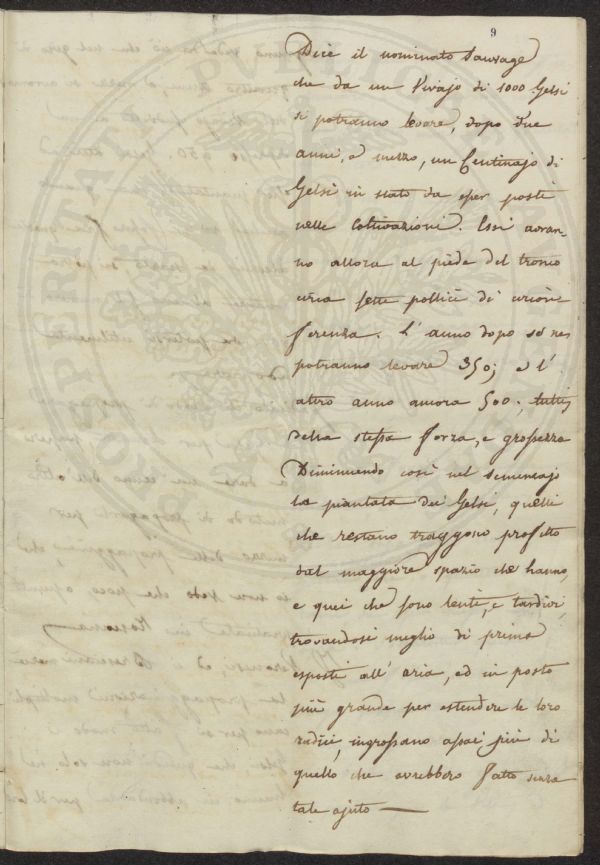 9
Dice il nominato Sauvage
che da un Vivajo di 1000. Gelsi
si potranno levare, dopo due
anni, e mezzo, un Centinajo di
Gelsi in stato da esser posti
nelle Coltivazioni. Essi avran-
no allora al piede del tronco
circa sette pollici di circon-
ferenza. L'anno dopo se ne
potranno levare 350; e l'
altro anno ancora 500; tutti
della stessa forza, e grossezza
Diminuendo così nel Semenzajo
la piantata dei Gelsi, quelli
che restano traggono profitto
dal maggiore spazio che hanno,
e quei che sono lenti, e tardivi,
trovandosi meglio di prima
esposti all'aria, ed in posto
più grande per estendere le loro
radici, ingrossano assai più di
quello che avrebbero fatto senza
tale ajuto